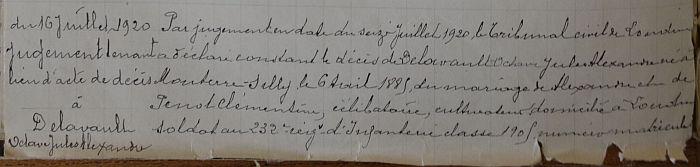 du 16 Juillet 1920 Par jugement en date du seize Juillet 1920, le Tribunal civil de Loudun
Jugement tenant a déclaré constant le décès de Delavault Octave Jules Alexandre né à
lieu d'acte de décès Mouterre-Silly, le 6 Avril 1885, du mariage de Alexandre et de
à Penot Clémentine, célibataire, cultivateur, domicilié à
Delavault soldat au 232e reg.t d'Infanterie classe 1905, numéro matricule
Octave Jules Alexandre